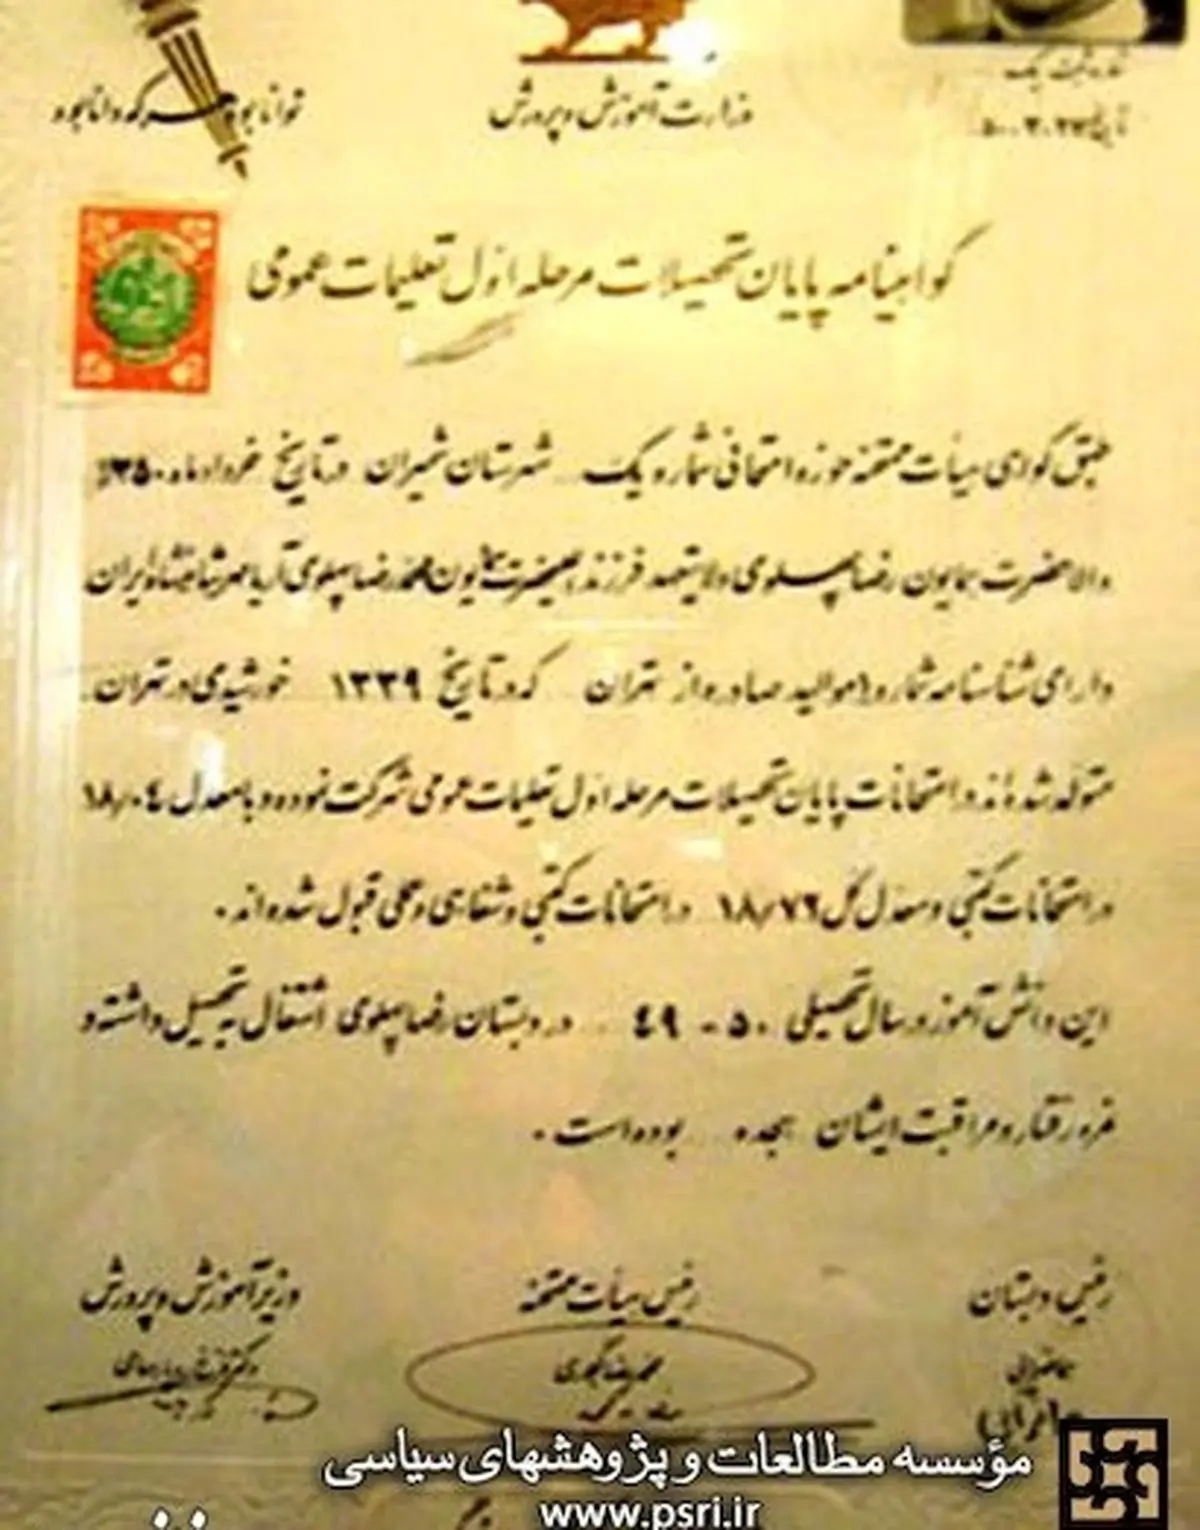 توانا بود هر که دانا بود
وزارت آموزش و پرورش
شماره ثبت یک
تاریخ ۵۰.۳.۲۷
گواهینامه پایان تحصیلات مرحله اول تعلیمات عمومی
طبق گواهی هیأت ممتحنه حوزه امتحانی شماره یک شهرستان شمیران در تاریخ خرداد ماه ۱۳۵۰
والاحضرت همایون رضا پهلوی ولایتعهد فرزند اعلیحضرت همایون محمدرضا پهلوی آریامهر شاهنشاه ایران
دارای شناسنامه شماره موالید صادره از تهران که در تاریخ ۱۳۳۹ خورشیدی در تهران
متولد شده‌اند در امتحانات پایان تحصیلات مرحله اول تعلیمات عمومی شرکت نموده و با معدل ۱۸/۰۴
در امتحانات کتبی و معدل کل ۱۸/۷۶ در امتحانات کتبی و شفاهی و عملی قبول شده‌اند.
این دانش آموز در سال تحصیلی ۵۰ - ۴۹ در دبستان رضا پهلوی اشتغال به تحصیل داشته و
نمره رفتار و مراقبت ایشان هجده بوده است.
رئیس دبستان
رئیس هیأت ممتحنه
وزیر آموزش و پرورش
مؤسسه مطالعات و پژوهشهای سیاسی
www.psri.ir